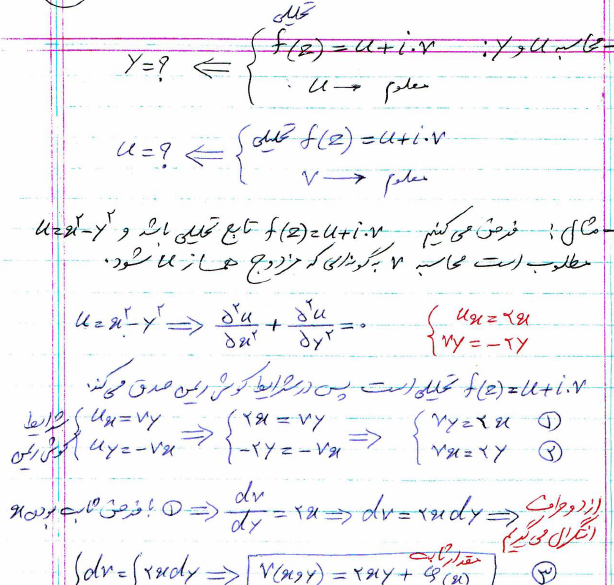 - محاسبه u و v: { f(z) = u + i.v تحلیلی ⇐ v = ?
u → معلوم
{ f(z) = u + i.v تحلیلی ⇐ u = ?
v → معلوم
- مثال: فرض می کنیم f(z) = u + i.v تابع تحلیلی باشد و u = x² - y²
مطلوب است محاسبه v به گونه ای که مزدوج همساز u شود.
u = x² - y² ⇒ ∂²u/∂x² + ∂²u/∂y² = ۰ { ux = ۲x
vy = -۲y
f(z) = u + i.v تحلیلی است پس در شرایط کوشی ریمن صدق می کند.
شرایط کوشی ریمن { ux = vy ⇒ { ۲x = vy ⇒ { vy = ۲x ①
uy = -vx -۲y = -vx vx = ۲y ②
① با فرض ثابت بودن x ⇒ dv/dy = ۲x ⇒ dv = ۲x dy ⇒ از دو طرف
انتگرال می گیریم
∫dv = ∫۲x dy ⇒ v(x,y) = ۲xy + φ(x) ③
مقدار ثابت